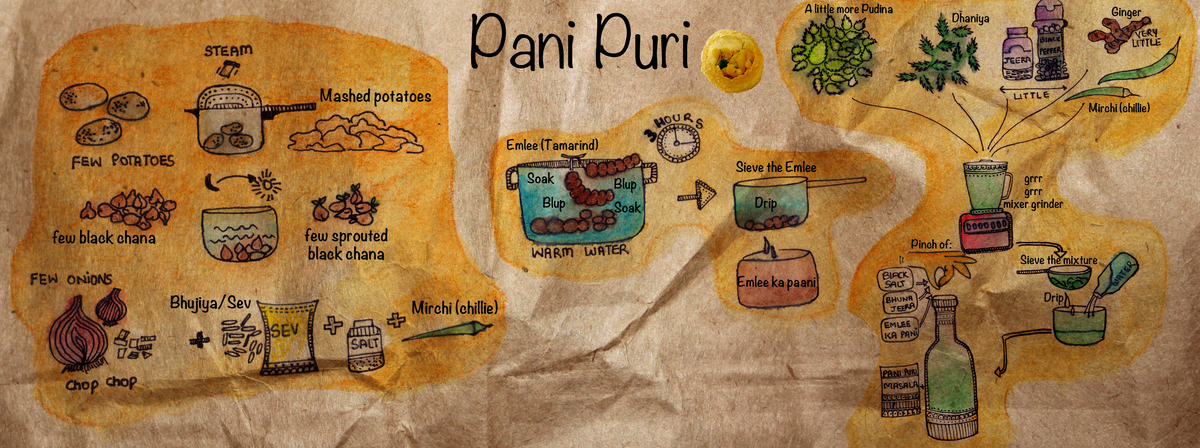 Pani Puri
STEAM
Mashed potatoes
FEW POTATOES
few black chana
few sprouted
black chana
FEW ONIONS
Bhujiya/Sev
SEV
SALT
Mirchi (chillie)
chop chop
3 HOURS
Emlee (Tamarind)
Soak
Blup
Blup
Soak
WARM WATER
Sieve the Emlee
Drip
Emlee ka paani
A little more Pudina
Dhaniya
JEERA
BLACK
PEPPER
LITTLE
Ginger
VERY
LITTLE
Mirchi (chillie)
grrr
grrr
mixer grinder
Pinch of:
BLACK
SALT
BHUNA
JEERA
EMLEE
KA PANI
PANI PURI
MASALA
Sieve the mixture
WATER
Drip